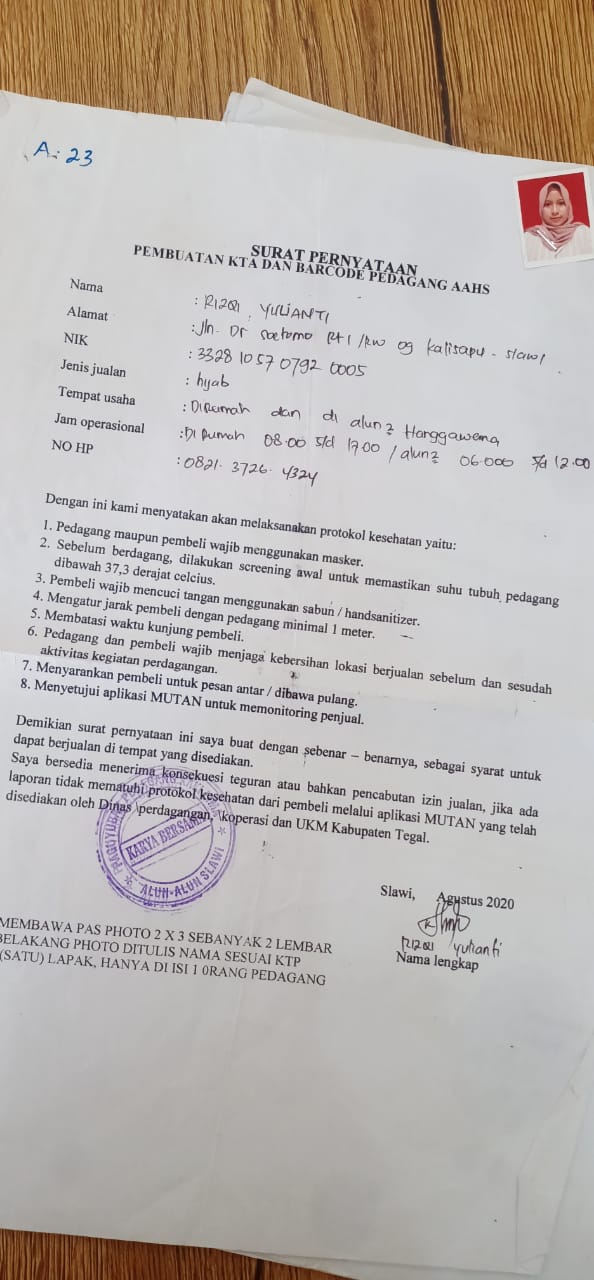 A: 23
SURAT PERNYATAAN
PEMBUATAN KTA DAN BARCODE PEDAGANG AAHS
Nama : RIZQI, YULIANTI
Alamat : Jln. Dr Soetomo Rt 1 /Rw 09 Kalisapu - Slawi
NIK : 3328 10 57 0792 0005
Jenis jualan : hijab
Tempat usaha : Dirumah dan di alun2 Hanggawana
Jam operasional : DI Rumah 08.00 s/d 17.00 / alun2 06.000 s/d 12.00
NO HP : 0821. 3726. 4324
Dengan ini kami menyatakan akan melaksanakan protokol kesehatan yaitu:
1. Pedagang maupun pembeli wajib menggunakan masker.
2. Sebelum berdagang, dilakukan screening awal untuk memastikan suhu tubuh pedagang
dibawah 37,3 derajat celcius.
3. Pembeli wajib mencuci tangan menggunakan sabun / handsanitizer.
4. Mengatur jarak pembeli dengan pedagang minimal 1 meter.
5. Membatasi waktu kunjung pembeli.
6. Pedagang dan pembeli wajib menjaga kebersihan lokasi berjualan sebelum dan sesudah
aktivitas kegiatan perdagangan.
7. Menyarankan pembeli untuk pesan antar / dibawa pulang.
8. Menyetujui aplikasi MUTAN untuk memonitoring penjual.
Demikian surat pernyataan ini saya buat dengan sebenar – benarnya, sebagai syarat untuk
dapat berjualan di tempat yang disediakan.
Saya bersedia menerima konsekuesi teguran atau bahkan pencabutan izin jualan, jika ada
laporan tidak mematuhi protokol kesehatan dari pembeli melalui aplikasi MUTAN yang telah
disediakan oleh Dinas perdagangan, koperasi dan UKM Kabupaten Tegal.
KARYA BERSAMA
ALUN-ALUN SLAWI
Slawi, Agustus 2020
RIZQI Yulianti
Nama lengkap
MEMBAWA PAS PHOTO 2 X 3 SEBANYAK 2 LEMBAR
BELAKANG PHOTO DITULIS NAMA SESUAI KTP
(SATU) LAPAK, HANYA DI ISI 1 0RANG PEDAGANG